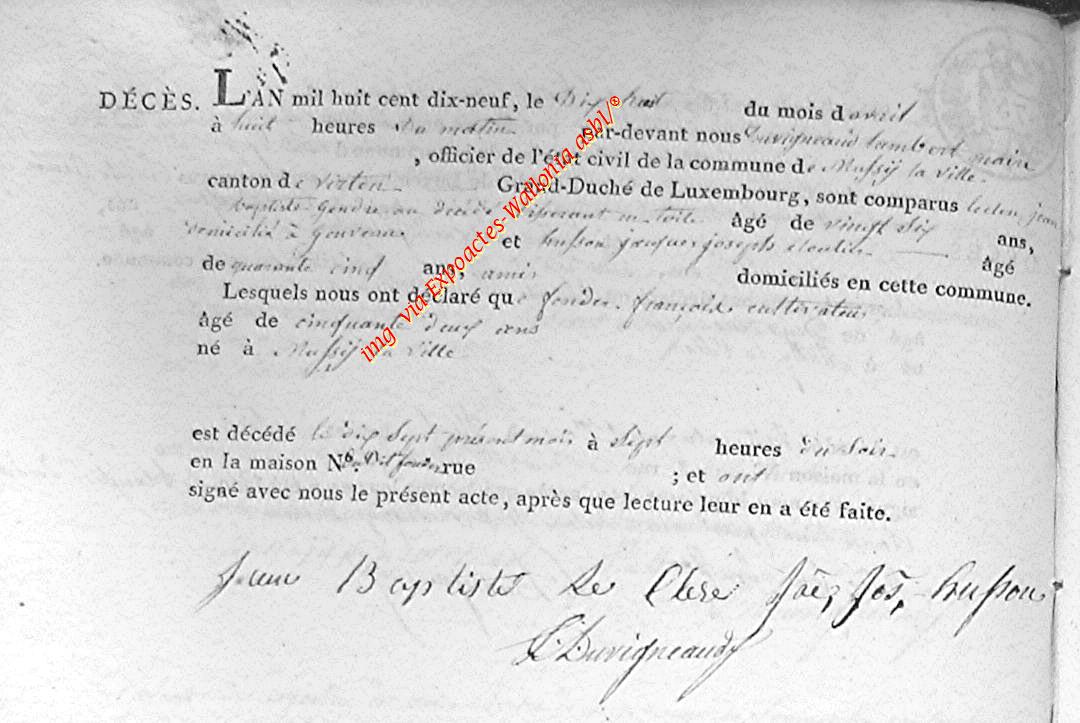 DÉCÈS. L'AN mil huit cent dix-neuf, le Dix huit du mois d avril
à huit heures du matin par-devant nous Duvigneaud lambert maire
, officier de l'état civil de la commune de Mussy la ville
canton de virton Grand-Duché de Luxembourg, sont comparus leclere jean
baptiste Gendre au décédé tisserant en toile âgé de vingt six ans,
domicilié à Gomeau et husson jacques joseph âgé
de quarante cinq ans, amis domiciliés en cette commune.
Lesquels nous ont déclaré que françois cultivateur
âgé de cinquante deux ans
né à Mussy la ville
est décédé le dix sept présent mois à sept heures du soir
en la maison N° rue ; et ont
signé avec nous le présent acte, après que lecture leur en a été faite.
Jean Baptiste Le Clere Jac, Jos, husson
L. Duvigneaud
img via Expoactes-Wallonia asbl/®